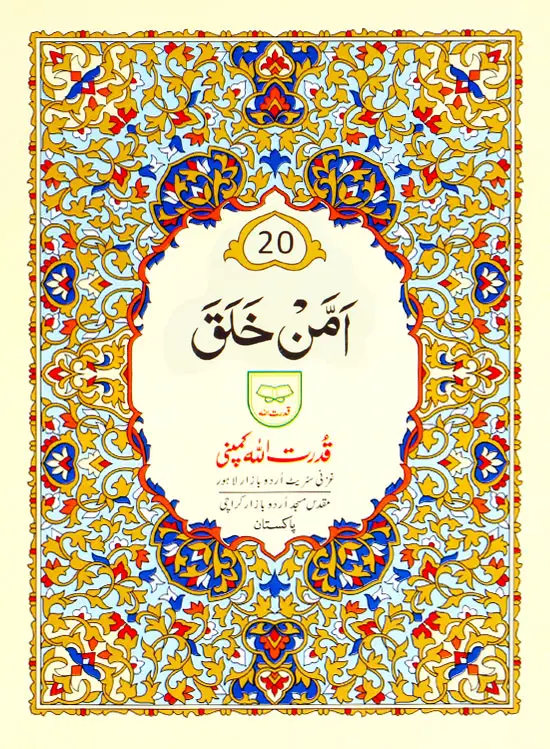 20
اَمَّنْ خَلَقَ
قدرت اللہ
قُدرت اللہ کمپنی
غزنی سٹریٹ اُردو بازار لاہور
مقدس مسجد اُردو بازار کراچی
پاکستان